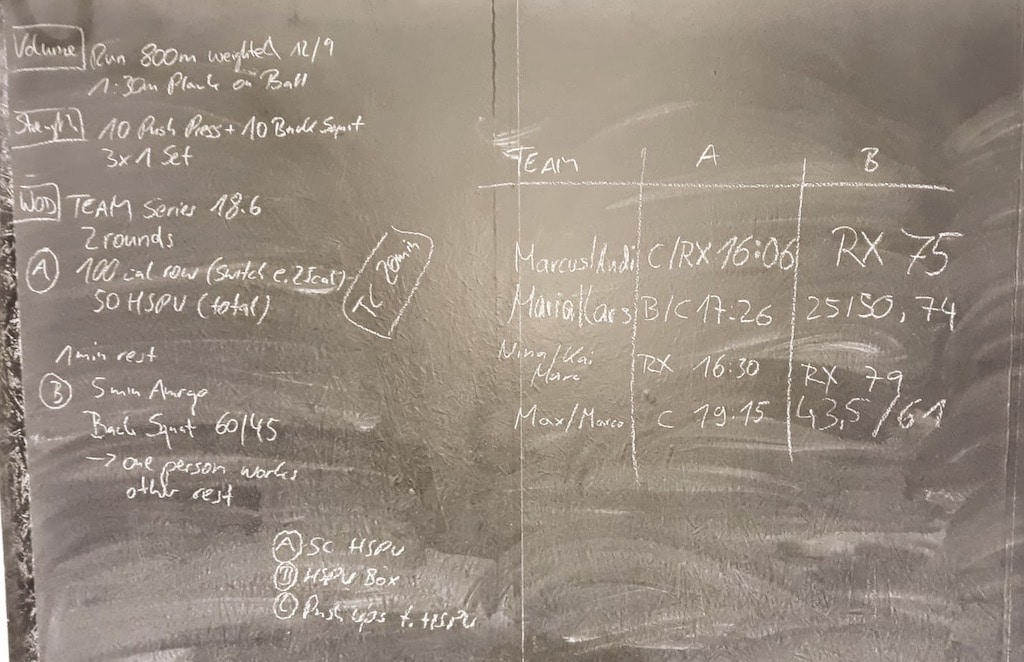 Volume Run 800m weighted 12/9
1:30m Plank on Ball
Strength 10 Push Press + 10 Back Squat
3x1 Set
WOD TEAM Series 18.6
2 rounds
A 100 cal row (switch e. 25cal)
50 HSPU (total)
TC 20min
1min rest
B 5min Amrap
Back Squat 60/45
→ one person works
other rest
A SC HSPU
B HSPU Box
C Push ups t. HSPU
TEAM A B
Marcus/Andi C/RX 16:06 RX 75
Maria/Kars B/C 17:26 25/50, 74
Nina/Kai
Marc RX 16:30 RX 79
Max/Marco C 19:15 43,5/61